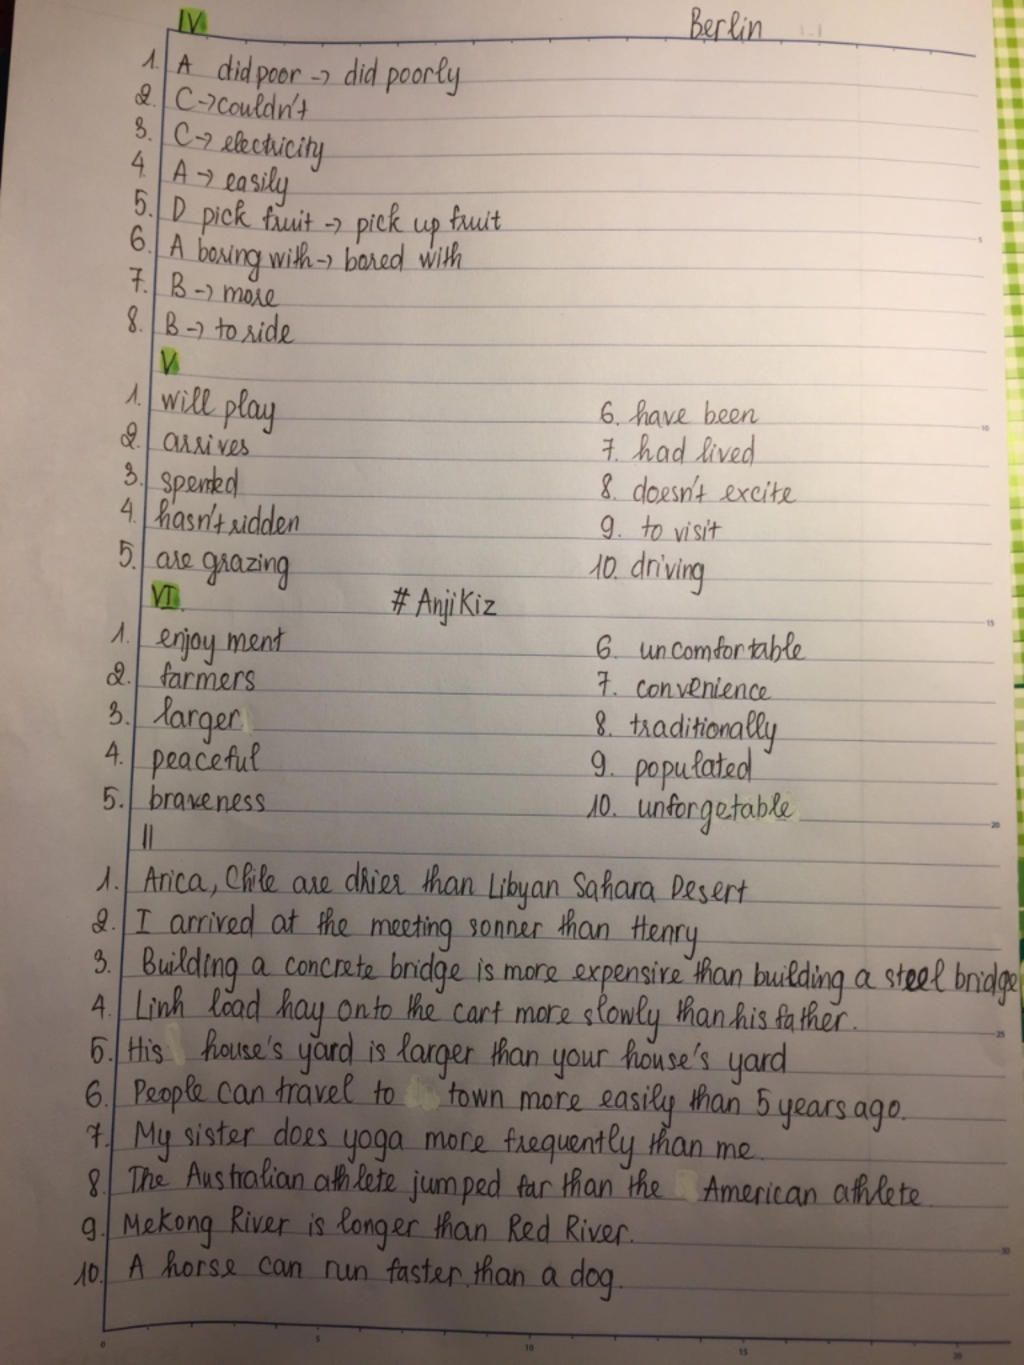 IV Berlin
1. A did poor -> did poorly
2. C -> couldn't
3. C -> electricity
4. A -> easily
5. D pick fruit -> pick up fruit
6. A boring with -> bored with
7. B -> more
8. B -> to ride
V
1. will play 6. have been
2. arrives 7. had lived
3. spented 8. doesn't excite
4. hasn't ridden 9. to visit
5. are grazing 10. driving
VI. # AnjiKiz
1. enjoyment 6. uncomfortable
2. farmers 7. convenience
3. larger 8. traditionally
4. peaceful 9. populated
5. braveness 10. unforgetable
II
1. Arica, Chile are drier than Libyan Sahara Desert
2. I arrived at the meeting sonner than Henry
3. Building a concrete bridge is more expensive than building a steel bridge
4. Linh load hay onto the cart more slowly than his father.
5. His house's yard is larger than your house's yard
6. People can travel to town more easily than 5 years ago.
7. My sister does yoga more frequently than me.
8. The Australian athlete jumped far than the American athlete
9. Mekong River is longer than Red River.
10. A horse can run faster than a dog.